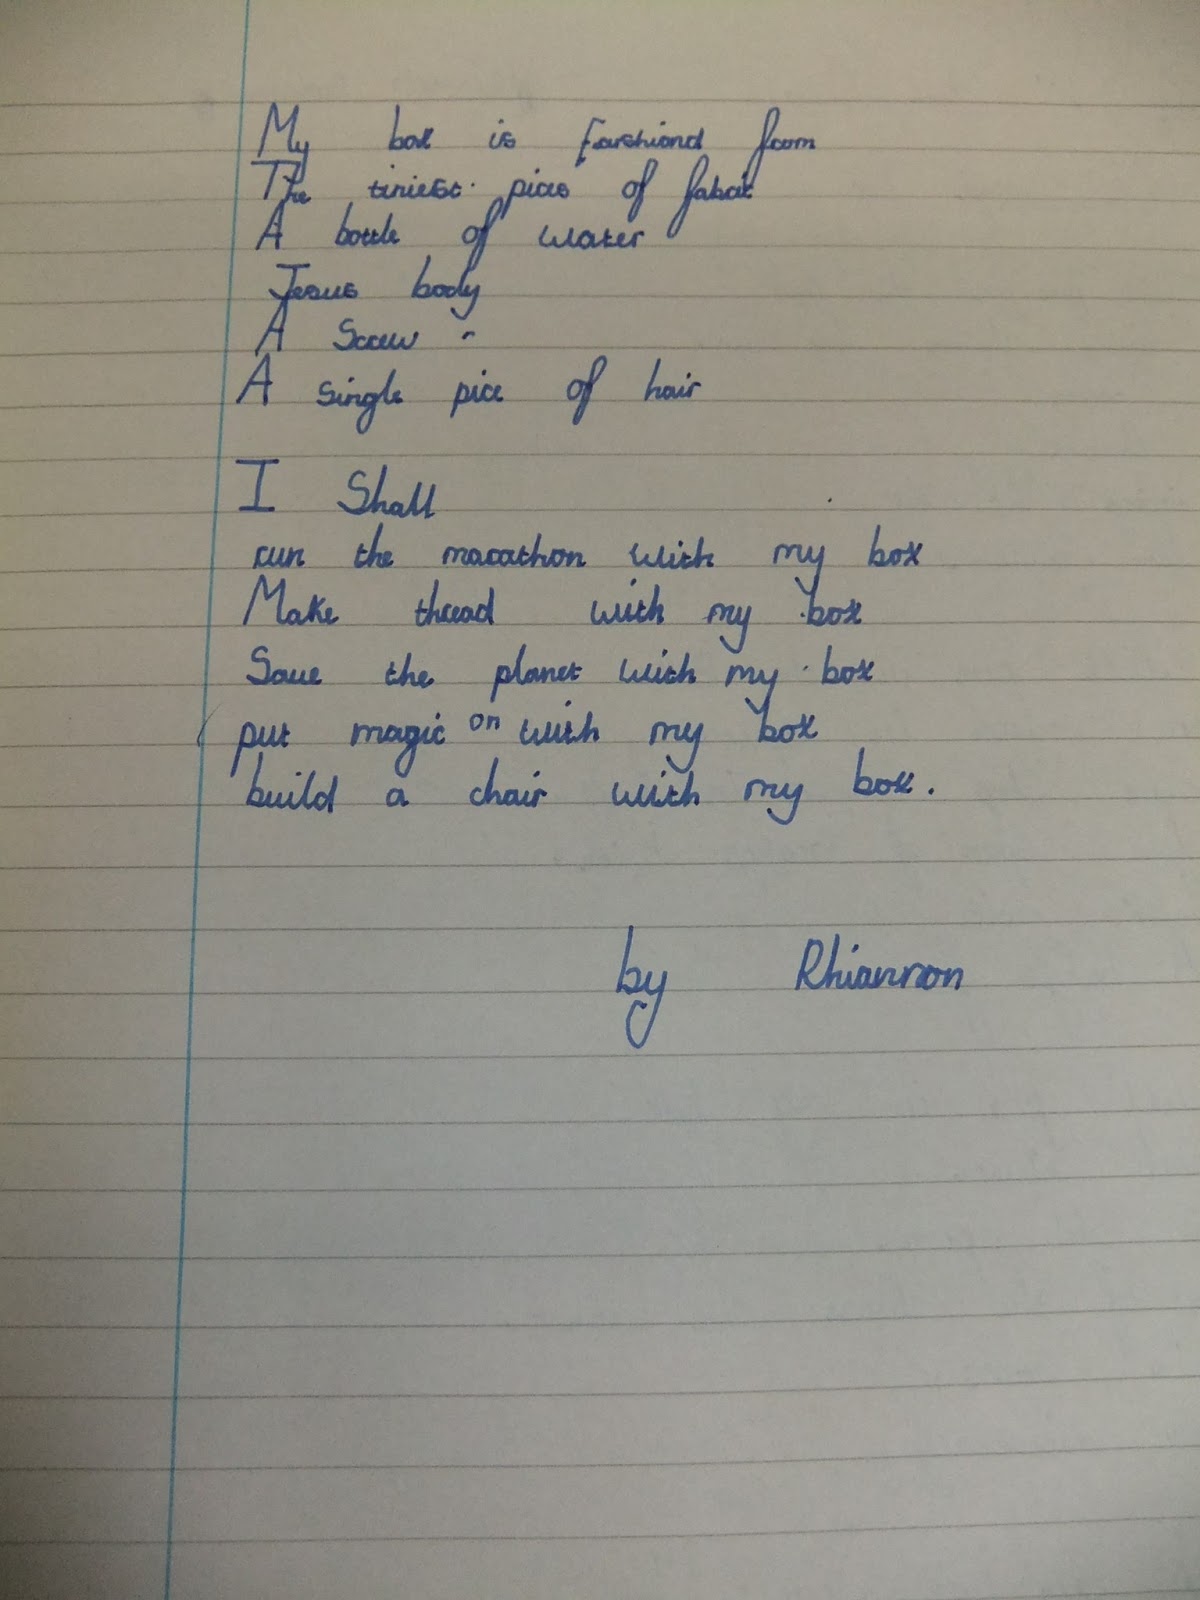 My box is farshiond from
The tiniest pice of fabric
A bottle of water
Jesus body
A Screw
A single pice of hair
I Shall
run the marathon with my box
Make thread with my box
Save the planet with my box
put magic on with my box
build a chair with my box.
by Rhiannon